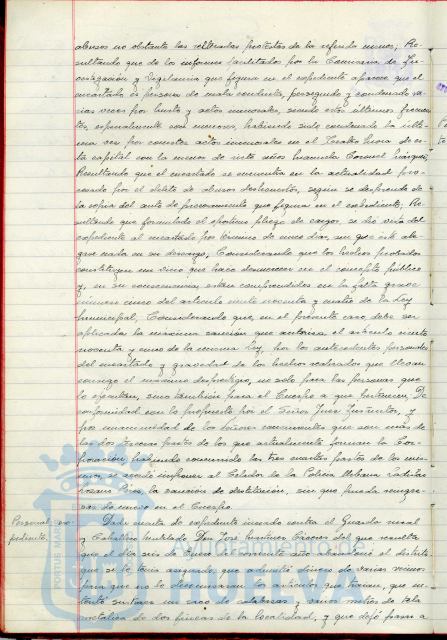 abusos no obstante las reiteradas protestas de la referida menor; Re-
sultando que de los informes facilitados por la Comisaria de In-
vestigación y Vigilancia que figura en el expediente aparece que el
encartado es persona de mala conducta, perseguido y condenado va-
rias veces por hurto y actos inmorales, siendo estos últimos frecuen-
tes, especialmente con menores, habiendo sido condenado la últi-
ma vez por cometer actos inmorales en el Teatro de es-
ta capital con la menor de siete años Manuela Coronel
Resultando que el encartado se encuentra en la actualidad pro-
cesado por el delito de abusos deshonestos, según se desprende de
la copia del auto de procesamiento que figura en el expediente; Re-
sultando que formulado el oportuno pliego de cargos, se dio vista del
expediente al encartado por término de cinco dias, sin que éste ale-
gase nada en su descargo, Considerando que los hechos probados
constituyen un vicio que hace desmerecer en el concepto público
y, en su consecuencia están comprendidos en la falta grave
número cinco del artículo ciento noventa y cuatro de la Ley
Municipal, Considerando que, en el presente caso debe ser
aplicada la máxima sanción que autoriza el artículo ciento
noventa y cinco de la misma Ley, por los antecedentes personales
del encartado y gravedad de los hechos realizados que llevan
consigo el máximo desprestigio, no solo para las personas que
lo ejecutan, sino también para el Cuerpo a que pertenecen, De
conformidad con lo propuesto por el Señor Juez Instructor, y
por unanimidad de los señores concurrentes que son más de
las dos terceras partes de los que actualmente forman la Cor-
poración, habiendo concurrido las tres cuartas partes de los mis-
mos, se acordó imponer al Celador de la Policia Urbana Ladislao
la sanción de destitución, sin que pueda reingre-
sar de nuevo en el Cuerpo
Personal: ex-
pediente.
Dada cuenta de expediente incoado contra el Guarda rural
y Caballero Mutilado Don José Martinez Cáceres del que resulta
que el dia seis de Enero del corriente año abandonó el distrito
que se le tenia asignado, que admitió dinero de varios vecinos
para que no le decomisaran los artículos que traian, que in-
tentó sustraer un saco de calabazas y varios metros de tela
metálica de dos fincas de la localidad, y que dejó pasar a
PORTUS MARIS
Ayuntamiento de
HUELVA